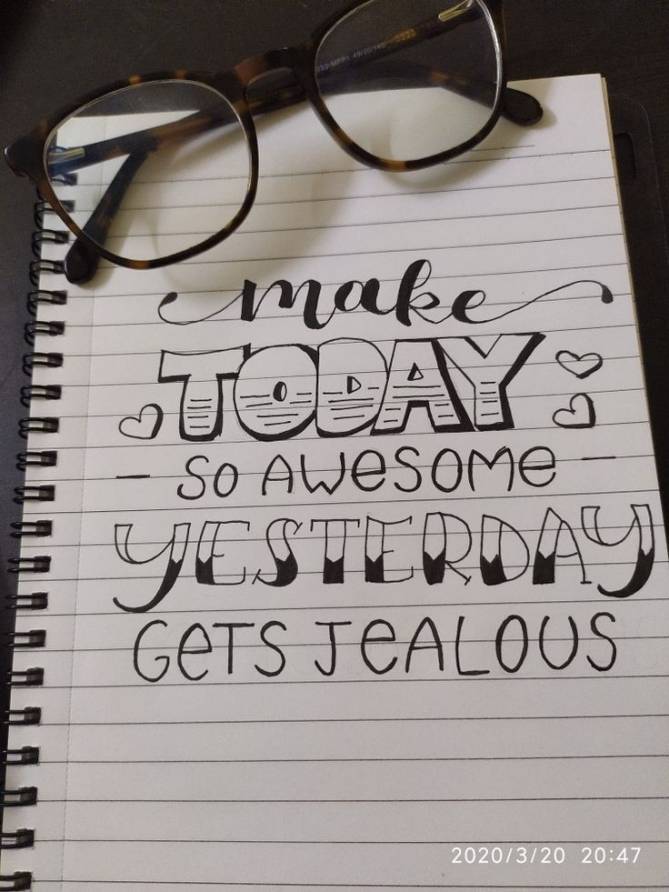 make
TODAY
- SO AWeSOMe -
YESTERDAY
GeTS JeALOUS
2020/3/20 20:47